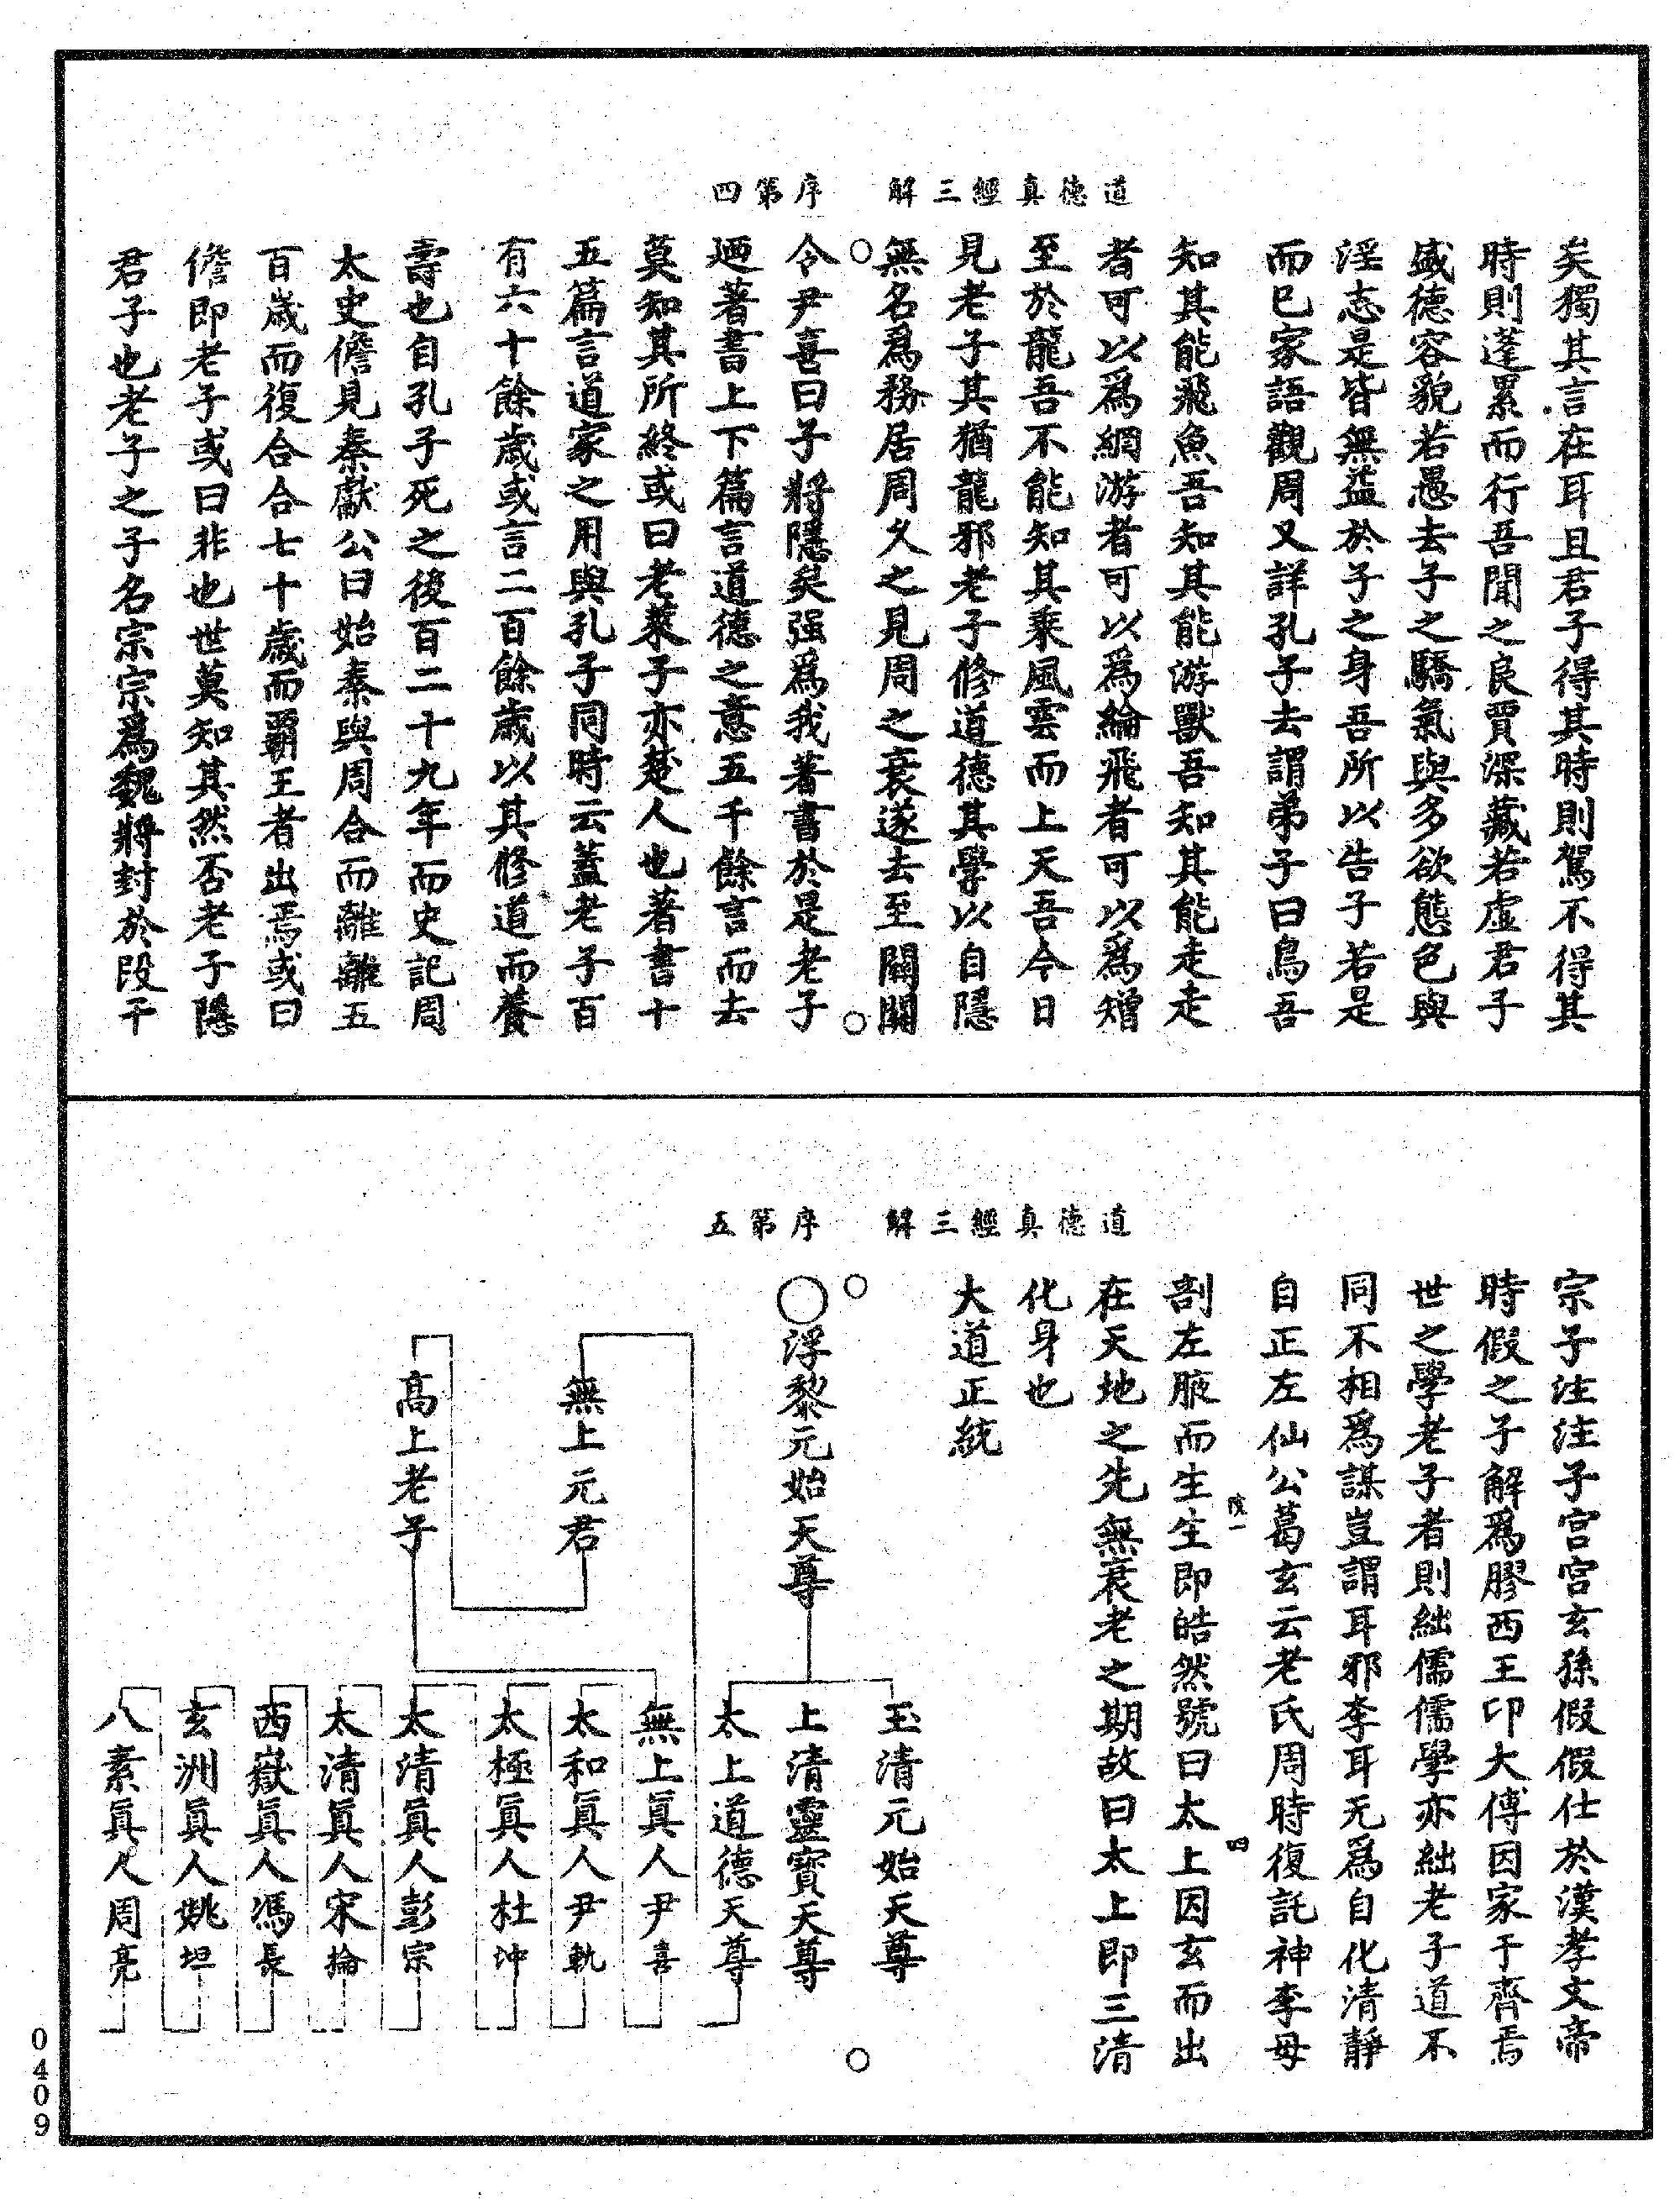 道德真經三解　序第四
矣獨其言在耳且君子得其時則駕不得其
時則蓬累而行吾聞之良賈深藏若虛君子
盛德容貌若愚去子之驕氣與多欲態色與
淫志是皆無益於子之身吾所以告子若是
而已家語觀周又詳孔子去謂弟子曰鳥吾
知其能飛魚吾知其能游獸吾知其能走走
者可以為網游者可以為綸飛者可以為矰
至於龍吾不能知其乘風雲而上天吾今日
見老子其猶龍邪老子修道德其學以自隱
無名為務居周久之見周之衰遂去至關關
令尹喜曰子將隱矣强為我著書於是老子
迺著書上下篇言道德之意五千餘言而去
莫知其所終或曰老萊子亦楚人也著書十
五篇言道家之用與孔子同時云蓋老子百
有六十餘歲或言二百餘歲以其修道而養
壽也自孔子死之後百二十九年而史記周
太史儋見秦獻公曰始秦與周合而離離五
百歲而復合合七十歲而霸王者出焉或曰
儋即老子或曰非也世莫知其然否老子隱
君子也老子之子名宗宗為魏將封於段干
道德真經三解　序第五
宗子注注子宫宫玄孫假假仕於漢孝文帝
時假之子解為膠西王卬大傅因家于齊焉
世之學老子者則絀儒儒學亦絀老子道不
同不相為謀豈謂耳邪李耳无為自化清靜
自正左仙公葛玄云老氏周時復託神李母
剖左腋而生生即皓然號曰太上因玄而出
在天地之先無衰老之期故曰太上即三清
化身也
大道正統
○浮黎元始天尊
無上元君
高上老子
玉清元始天尊
上清靈寶天尊
太上道德天尊
無上真人尹喜
太和真人尹軌
太極真人杜冲
太清真人彭宗
太清真人宋倫
西嶽真人馮長
玄洲真人姚坦
八素真人周亮
四
0409